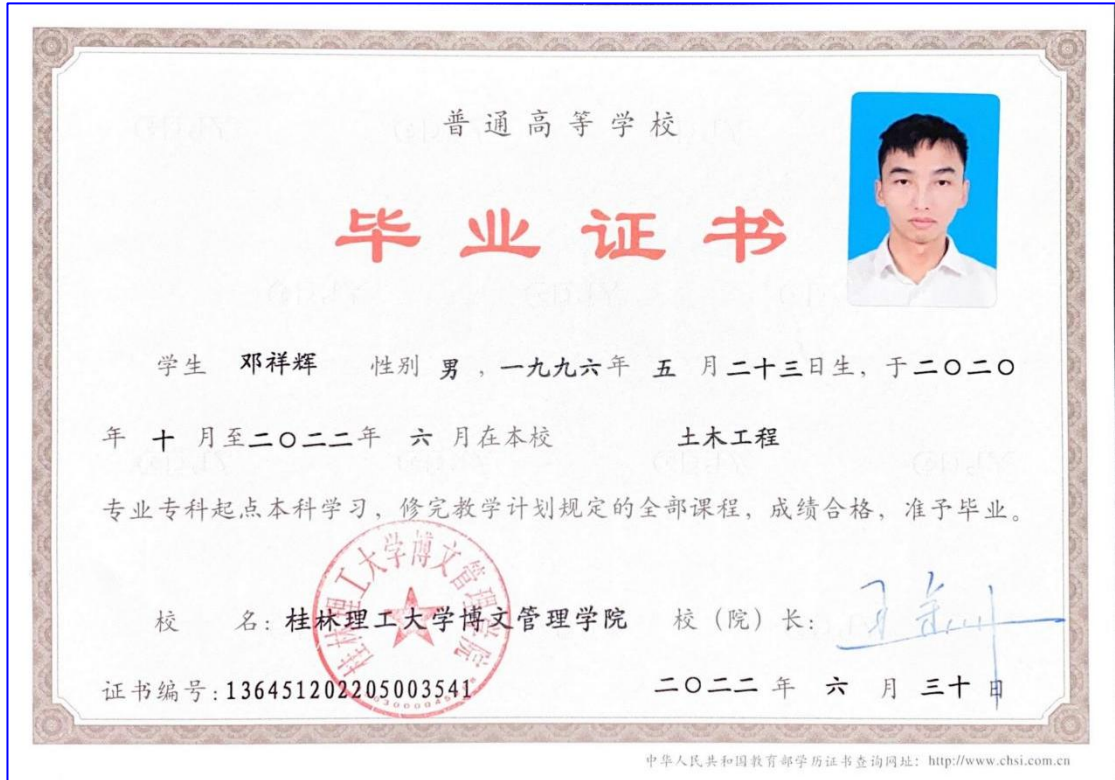 普通高等学校
毕业证书
学生 邓祥辉 性别 男，一九九六年 五 月二十三日生，于二〇二〇
年 十 月至二〇二二年 六 月在本校 土木工程
专业专科起点本科学习，修完教学计划规定的全部课程，成绩合格，准予毕业。
桂林理工大学博文管理学院
校 名：桂林理工大学博文管理学院 校（院）长：
证书编号：136451202205003541 二〇二二 年 六 月 三十 日
中华人民共和国教育部学历证书查询网址：http://www.chsi.com.cn